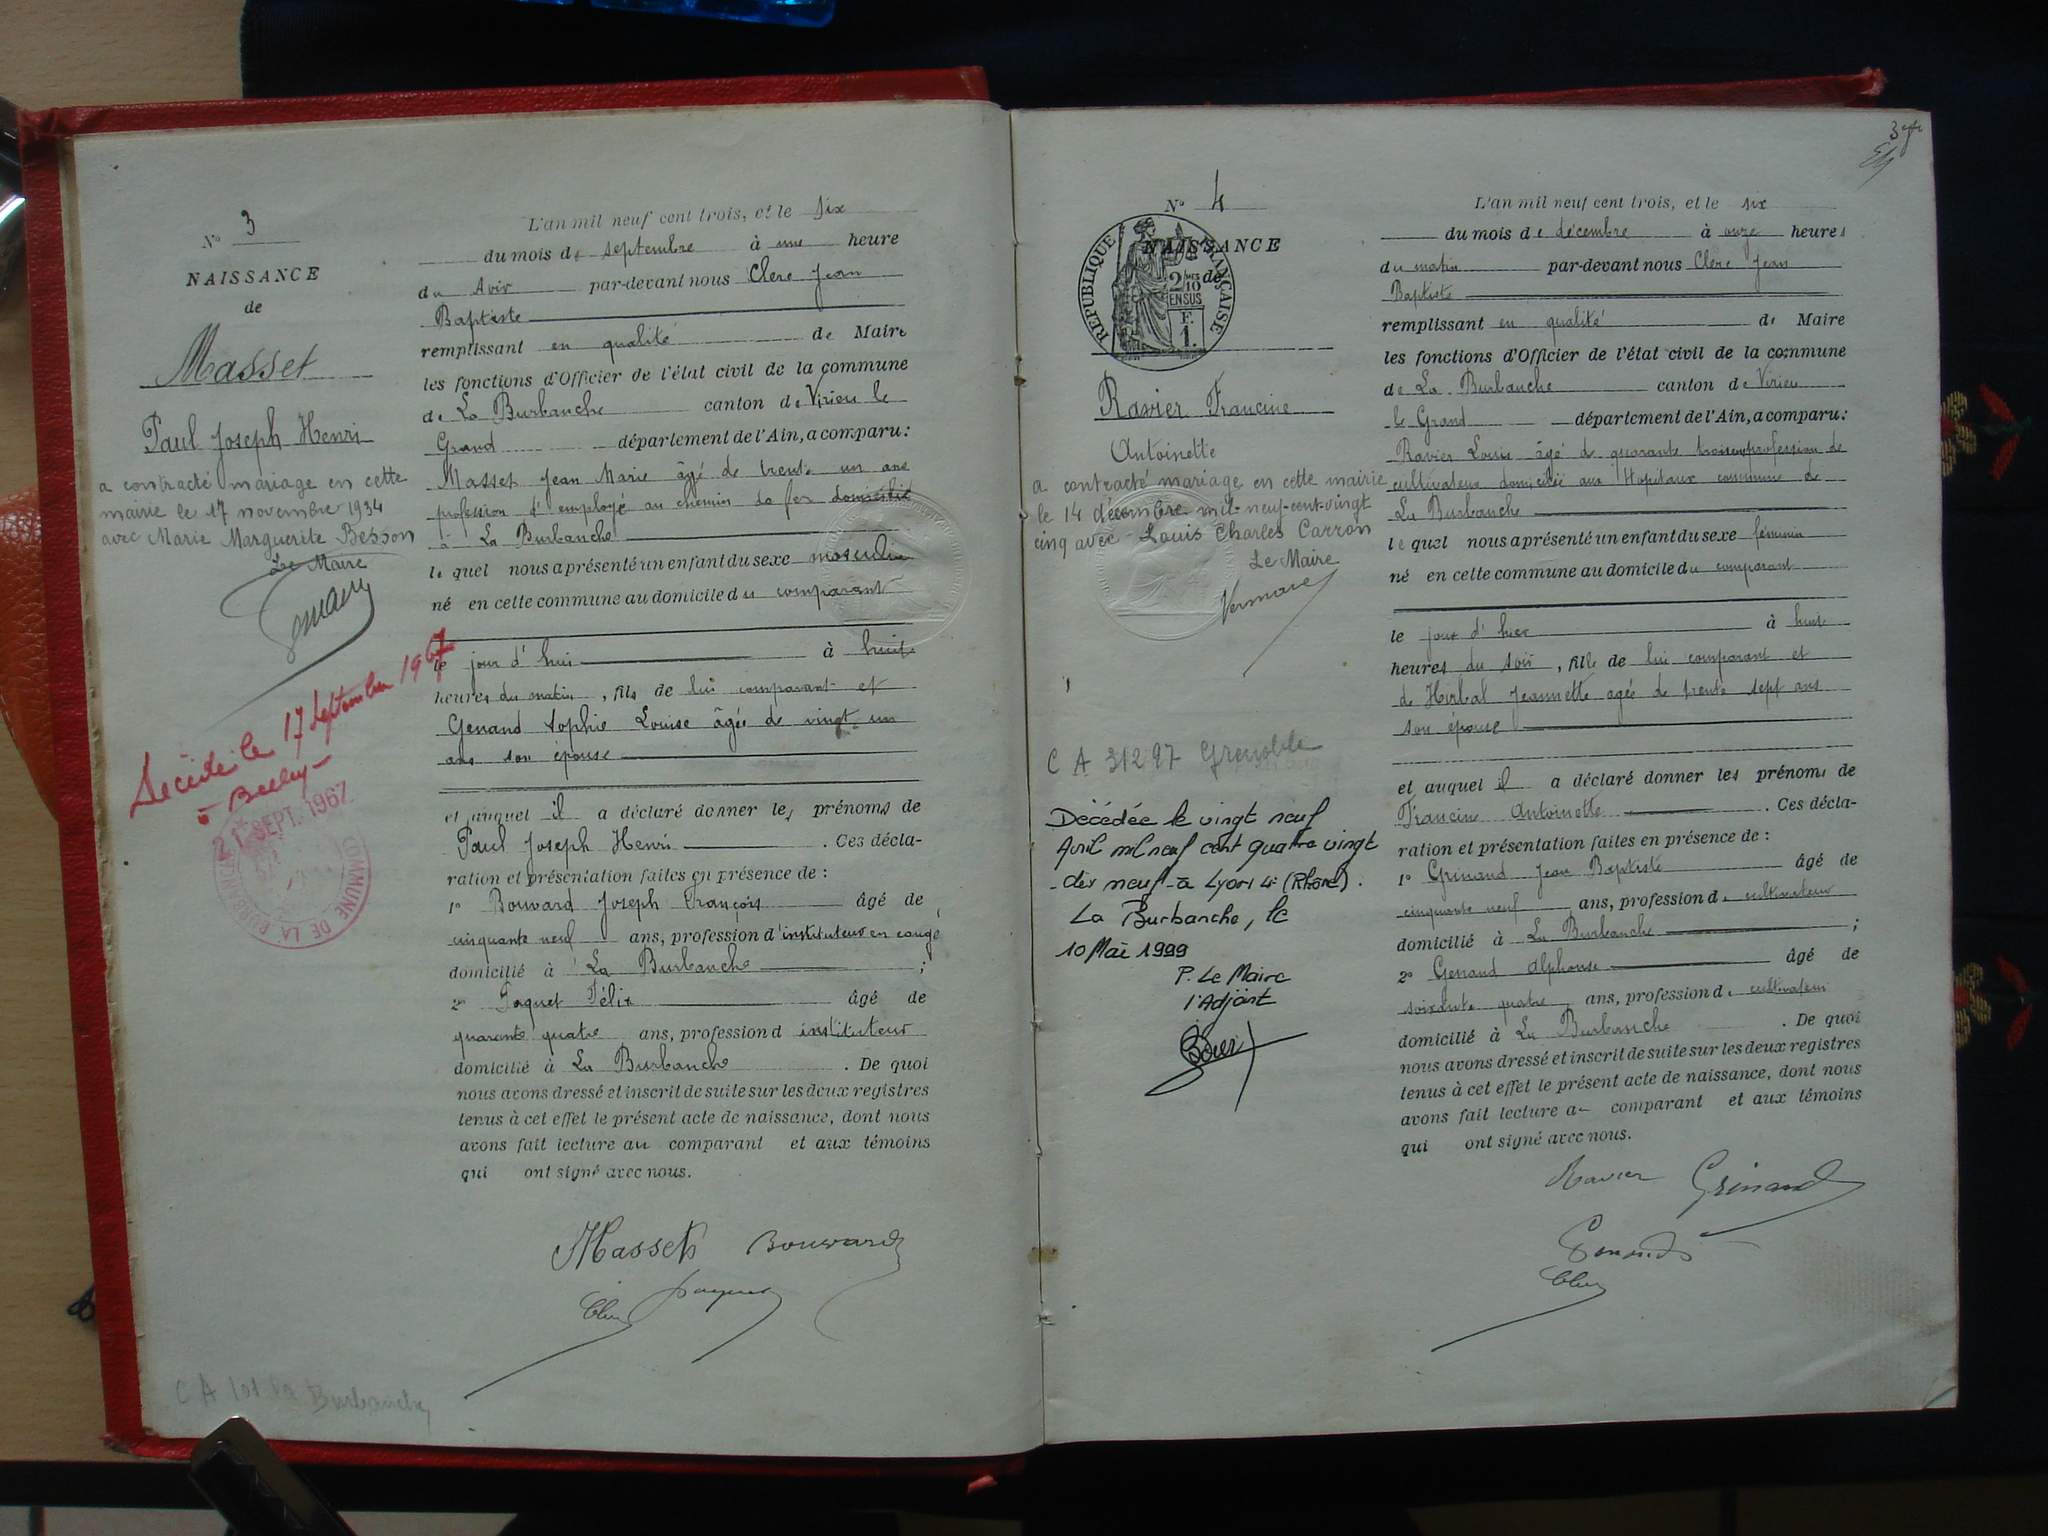 N° 3
NAISSANCE
de
Masset
Paul Joseph Henri
a contracté mariage en cette
mairie le 17 novembre 1934
avec Marie Marguerite Besson
Le Maire
Décédé le 17 Septembre 1967
à Belley
21 SEPT. 1967
COMMUNE DE LA BURBANCHE
L'an mil neuf cent trois, et le six
du mois de septembre à une heure
du soir par-devant nous Clerc Jean
Baptiste
remplissant en qualité de Maire
les fonctions d'Officier de l'état civil de la commune
de La Burbanche canton de Virieu le
Grand département de l'Ain, a comparu:
Masset Jean Marie âgé de trente un ans
profession d'employé au chemin de fer domicilié
à La Burbanche
le quel nous a présenté un enfant du sexe masculin
né en cette commune au domicile du comparant
le jour d'hui à huit
heures du matin, fils de lui comparant et
Genand Sophie Louise âgée de vingt un
ans son épouse
et auquel il a déclaré donner les prénoms de
Paul Joseph Henri . Ces décla-
ration et présentation faites en présence de :
1° Bouvard Joseph François âgé de
cinquante neuf ans, profession d'instituteur en congé
domicilié à La Burbanche ;
2° Jaquet Félix âgé de
quarante quatre ans, profession d instituteur
domicilié à La Burbanche . De quoi
nous avons dressé et inscrit de suite sur les deux registres
tenus à cet effet le présent acte de naissance, dont nous
avons fait lecture au comparant et aux témoins
qui ont signé avec nous.
Masset Bouvard
Clerc Jaquet
C A La Burbanche
N° 4
NAISSANCE
de
RÉPUBLIQUE FRANÇAISE
2/10
EN SUS
F.
1.
Ravier Francine
Antoinette
a contracté mariage en cette mairie
le 14 décembre mil-neuf-cent-vingt
cinq avec Louis Charles Carron
Le Maire
C A 31297 Grenoble
Décédée le vingt neuf
Avril mil neuf cent quatre vingt
-dix neuf à Lyon 4e (Rhône).
La Burbanche, le
10 Mai 1999
P. Le Maire
l'Adjoint
L'an mil neuf cent trois, et le six
du mois de décembre à onze heures
du matin par-devant nous Clerc Jean
Baptiste
remplissant en qualité de Maire
les fonctions d'Officier de l'état civil de la commune
de La Burbanche canton de Virieu
le Grand département de l'Ain, a comparu:
Ravier Louis âgé de quarante trois ans profession de
cultivateur domicilié aux Hopitaux commune de
La Burbanche
le quel nous a présenté un enfant du sexe féminin
né en cette commune au domicile du comparant
le jour d'hier à huit
heures du soir, fille de lui comparant et
de Hirbal Jeannette agée de trente sept ans
son épouse
et auquel il a déclaré donner les prénoms de
Francine Antoinette . Ces décla-
ration et présentation faites en présence de :
1° Grinand Jean Baptiste âgé de
cinquante neuf ans, profession de cultivateur
domicilié à La Burbanche ;
2° Genand Alphonse âgé de
soixante quatre ans, profession de cultivateur
domicilié à La Burbanche . De quoi
nous avons dressé et inscrit de suite sur les deux registres
tenus à cet effet le présent acte de naissance, dont nous
avons fait lecture au comparant et aux témoins
qui ont signé avec nous.
Ravier Grinand
Genand
Clerc